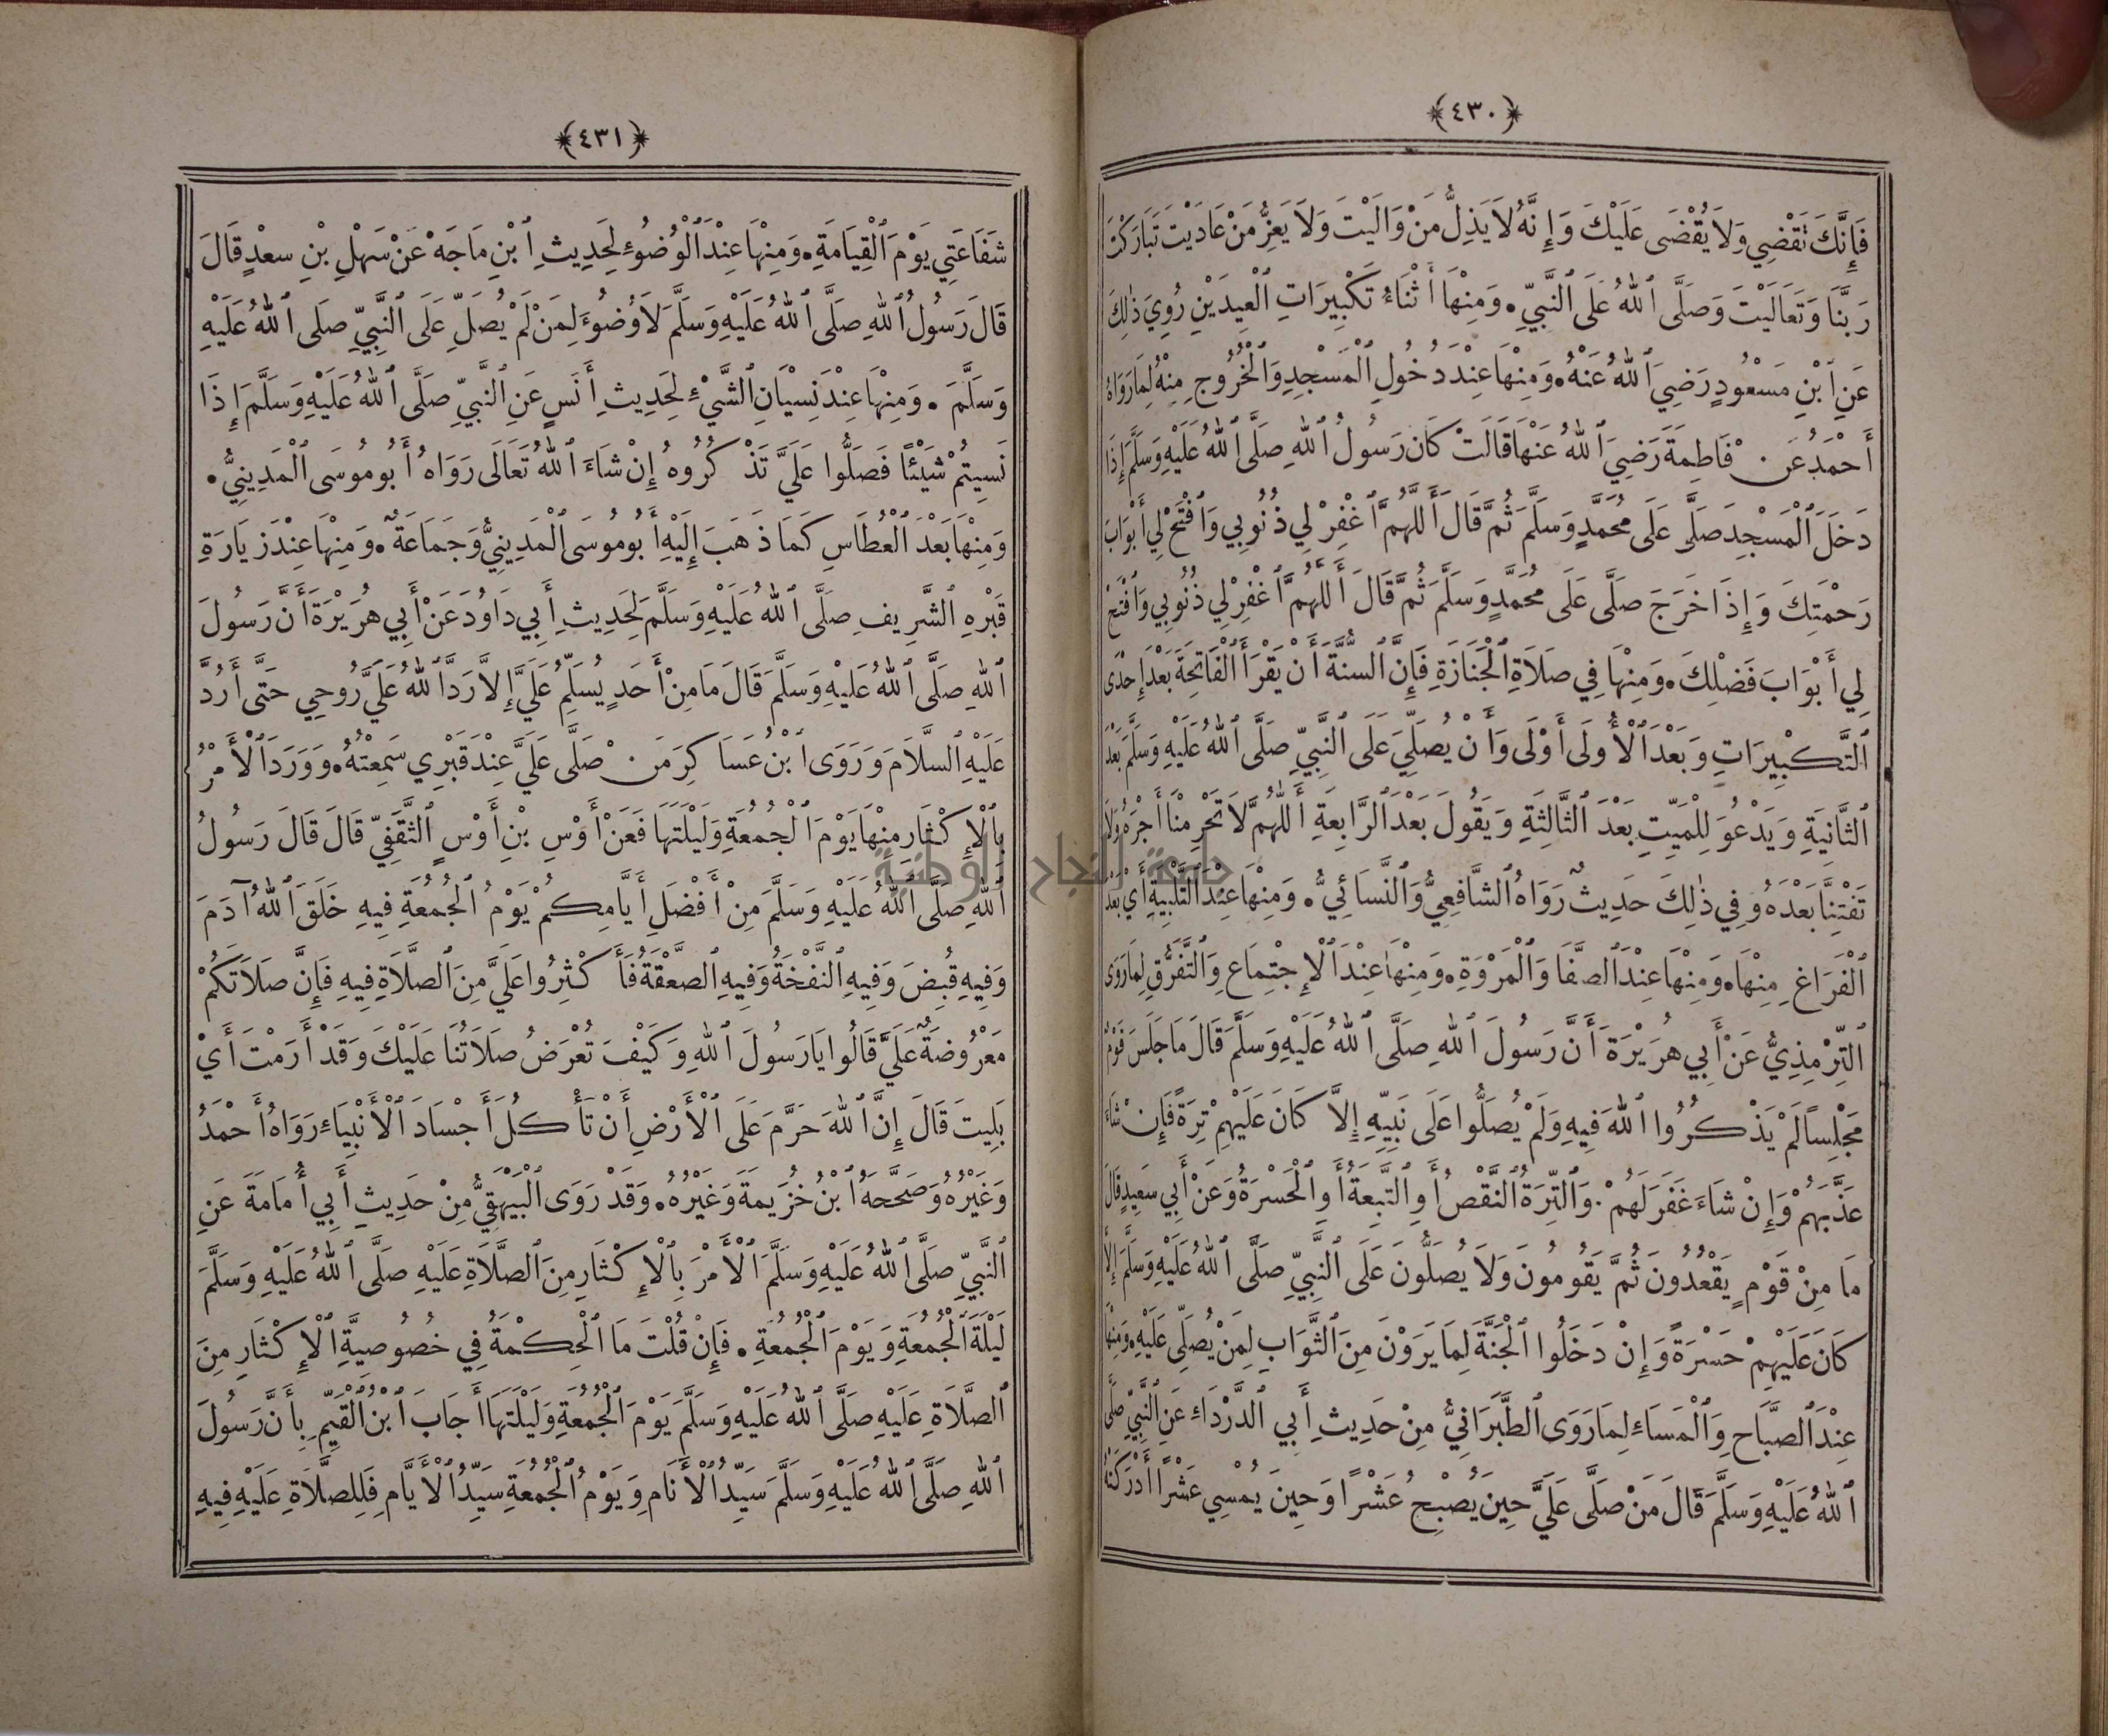 ﴿٤٣٠﴾
فَإِنَّكَ تَقْضِي وَلاَ يُقْضَى عَلَيْكَ وَإِنَّهُ لاَ يَذِلُّ مَنْ وَالَيْتَ وَلاَ يَعِزُّ مَنْ عَادَيْتَ تَبَارَكْتَ
رَبَّنَا وَتَعَالَيْتَ وَصَلَّى ٱللهُ عَلَى ٱلنَّبِيِّ. وَمِنْهَا أَثْنَاءَ تَكْبِيرَاتِ ٱلْعِيدَيْنِ رُوِيَ ذٰلِكَ
عَنِ ٱبْنِ مَسْعُودٍ رَضِيَ ٱللهُ عَنْهُ. وَمِنْهَا عِنْدَ دُخُولِ ٱلْمَسْجِدِ وَٱلْخُرُوجِ مِنْهُ لِمَا رَوَاهُ
أَحْمَدُ عَنْ فَاطِمَةَ رَضِيَ ٱللهُ عَنْهَا قَالَتْ كَانَ رَسُولُ ٱللهِ صَلَّى ٱللهُ عَلَيْهِ وَسَلَّمَ إِذَا
دَخَلَ ٱلْمَسْجِدَ صَلَّى عَلَى مُحَمَّدٍ وَسَلَّمَ ثُمَّ قَالَ أَللّٰهُمَّ ٱغْفِرْ لِي ذُنُوبِي وَٱفْتَحْ لِي أَبْوَابَ
رَحْمَتِكَ وَإِذَا خَرَجَ صَلَّى عَلَى مُحَمَّدٍ وَسَلَّمَ ثُمَّ قَالَ أَللّٰهُمَّ ٱغْفِرْ لِي ذُنُوبِي وَٱفْتَحْ
لِي أَبْوَابَ فَضْلِكَ. وَمِنْهَا فِي صَلاَةِ ٱلْجَنَازَةِ فَإِنَّ ٱلسُّنَّةَ أَنْ يَقْرَأَ ٱلْفَاتِحَةَ بَعْدَ إِحْدَى
ٱلتَّكْبِيرَاتِ وَبَعْدَ ٱلْأُولَى أَوْلَى وَأَنْ يُصَلِّيَ عَلَى ٱلنَّبِيِّ صَلَّى ٱللهُ عَلَيْهِ وَسَلَّمَ بَعْدَ
ٱلثَّانِيَةِ وَيَدْعُوَ لِلْمَيِّتِ بَعْدَ ٱلثَّالِثَةِ وَيَقُولَ بَعْدَ ٱلرَّابِعَةِ أَللّٰهُمَّ لاَ تَحْرِمْنَا أَجْرَهُ وَلاَ
تَفْتِنَّا بَعْدَهُ وَفِي ذٰلِكَ حَدِيثٌ رَوَاهُ ٱلشَّافِعِيُّ وَٱلنَّسَائِيُّ. وَمِنْهَا عِنْدَ ٱلتَّلْبِيَةِ أَيْ بَعْدَ
ٱلْفَرَاغِ مِنْهَا. وَمِنْهَا عِنْدَ ٱلصَّفَا وَٱلْمَرْوَةِ. وَمِنْهَا عِنْدَ ٱلْإِجْتِمَاعِ وَٱلتَّفَرُّقِ لِمَا رَوَى
ٱلتِّرْمِذِيُّ عَنْ أَبِي هُرَيْرَةَ أَنَّ رَسُولَ ٱللهِ صَلَّى ٱللهُ عَلَيْهِ وَسَلَّمَ قَالَ مَا جَلَسَ قَوْمٌ
مَجْلِسًا لَمْ يَذْكُرُوا ٱللهَ فِيهِ وَلَمْ يُصَلُّوا عَلَى نَبِيِّهِ إِلاَّ كَانَ عَلَيْهِمْ تِرَةً فَإِنْ شَاءَ
عَذَّبَهُمْ وَإِنْ شَاءَ غَفَرَ لَهُمْ. وَٱلتِّرَةُ ٱلنَّقْصُ أَوِ ٱلتَّبِعَةُ أَوِ ٱلْحَسْرَةُ وَعَنْ أَبِي سَعِيدٍ قَالَ
مَا مِنْ قَوْمٍ يَقْعُدُونَ ثُمَّ يَقُومُونَ وَلاَ يُصَلُّونَ عَلَى ٱلنَّبِيِّ صَلَّى ٱللهُ عَلَيْهِ وَسَلَّمَ إِلاَّ
كَانَ عَلَيْهِمْ حَسْرَةً وَإِنْ دَخَلُوا ٱلْجَنَّةَ لِمَا يَرَوْنَ مِنَ ٱلثَّوَابِ لِمَنْ يُصَلِّي عَلَيْهِ. وَمِنْهَا
عِنْدَ ٱلصَّبَاحِ وَٱلْمَسَاءِ لِمَا رَوَى ٱلطَّبَرَانِيُّ مِنْ حَدِيثِ أَبِي ٱلدَّرْدَاءِ عَنِ ٱلنَّبِيِّ صَلَّى
ٱللهُ عَلَيْهِ وَسَلَّمَ قَالَ مَنْ صَلَّى عَلَيَّ حِينَ يُصْبِحُ عَشْرًا وَحِينَ يُمْسِي عَشْرًا أَدْرَكَتْهُ
﴿٤٣١﴾
شَفَاعَتِي يَوْمَ ٱلْقِيَامَةِ. وَمِنْهَا عِنْدَ ٱلْوُضُوءِ لِحَدِيثِ ٱبْنِ مَاجَهْ عَنْ سَهْلِ بْنِ سعْدٍ قَالَ
قَالَ رَسُولُ ٱللهِ صَلَّى ٱللهُ عَلَيْهِ وَسَلَّمَ لاَ وُضُوءَ لِمَنْ لَمْ يُصَلِّ عَلَى ٱلنَّبِيِّ صَلَّى ٱللهُ عَلَيْهِ
وَسَلَّمَ. وَمِنْهَا عِنْدَ نِسْيَانِ ٱلشَّيْءِ لِحَدِيثِ أَنَسٍ عَنِ ٱلنَّبِيِّ صَلَّى ٱللهُ عَلَيْهِ وَسَلَّمَ إِذَا
نَسِيتُمْ شَيْئًا فَصَلُّوا عَلَيَّ تَذْكُرُوهُ إِنْ شَاءَ ٱللهُ تَعَالَى رَوَاهُ أَبُو مُوسَى ٱلْمَدِينِيُّ.
وَمِنْهَا بَعْدَ ٱلْعُطَاسِ كَمَا ذَهَبَ إِلَيْهِ أَبُو مُوسَى ٱلْمَدِينِيُّ وَجَمَاعَةٌ. وَمِنْهَا عِنْدَ زِيَارَةِ
قَبْرِهِ ٱلشَّرِيفِ صَلَّى ٱللهُ عَلَيْهِ وَسَلَّمَ لِحَدِيثِ أَبِي دَاوُدَ عَنْ أَبِي هُرَيْرَةَ أَنَّ رَسُولَ
ٱللهِ صَلَّى ٱللهُ عَلَيْهِ وَسَلَّمَ قَالَ مَا مِنْ أَحَدٍ يُسَلِّمُ عَلَيَّ إِلاَّ رَدَّ ٱللهُ عَلَيَّ رُوحِي حَتَّى أَرُدَّ
عَلَيْهِ ٱلسَّلاَمَ وَرَوَى ٱبْنُ عَسَاكِرَ مَنْ صَلَّى عَلَيَّ عِنْدَ قَبْرِي سَمِعْتُهُ. وَوَرَدَ ٱلْأَمْرُ
بِٱلْإِكْثَارِ مِنْهَا يَوْمَ ٱلْجُمُعَةِ وَلَيْلَتَهَا فَعَنْ أَوْسِ بْنِ أَوْسٍ ٱلثَّقَفِيِّ قَالَ قَالَ رَسُولُ
ٱللهِ صَلَّى ٱللهُ عَلَيْهِ وَسَلَّمَ مِنْ أَفْضَلِ أَيَّامِكُمْ يَوْمُ ٱلْجُمُعَةِ فِيهِ خَلَقَ ٱللهُ آدَمَ
وَفِيهِ قُبِضَ وَفِيهِ ٱلنَّفْخَةُ وَفِيهِ ٱلصَّعْقَةُ فَأَكْثِرُوا عَلَيَّ مِنَ ٱلصَّلاَةِ فِيهِ فَإِنَّ صَلاَتَكُمْ
مَعْرُوضَةٌ عَلَيَّ قَالُوا يَا رَسُولَ ٱللهِ وَكَيْفَ تُعْرَضُ صَلاَتُنَا عَلَيْكَ وَقَدْ أَرَمْتَ أَيْ
بَلِيتَ قَالَ إِنَّ ٱللهَ حَرَّمَ عَلَى ٱلْأَرْضِ أَنْ تَأْكُلَ أَجْسَادَ ٱلْأَنْبِيَاءِ رَوَاهُ أَحْمَدُ
وَغَيْرُهُ وَصَحَّحَهُ ٱبْنُ خُزَيْمَةَ وَغَيْرُهُ. وَقَدْ رَوَى ٱلْبَيْهَقِيُّ مِنْ حَدِيثِ أَبِي أُمَامَةَ عَنِ
ٱلنَّبِيِّ صَلَّى ٱللهُ عَلَيْهِ وَسَلَّمَ ٱلْأَمْرَ بِٱلْإِكْثَارِ مِنَ ٱلصَّلاَةِ عَلَيْهِ صَلَّى ٱللهُ عَلَيْهِ وَسَلَّمَ
لَيْلَةَ ٱلْجُمُعَةِ وَيَوْمَ ٱلْجُمُعَةِ. فَإِنْ قُلْتَ مَا ٱلْحِكْمَةُ فِي خُصُوصِيَّةِ ٱلْإِكْثَارِ مِنَ
ٱلصَّلاَةِ عَلَيْهِ صَلَّى ٱللهُ عَلَيْهِ وَسَلَّمَ يَوْمَ ٱلْجُمُعَةِ وَلَيْلَتَهَا أَجَابَ ٱبْنُ ٱلْقَيِّمِ بِأَنَّ رَسُولَ
ٱللهِ صَلَّى ٱللهُ عَلَيْهِ وَسَلَّمَ سَيِّدُ ٱلْأَنَامِ وَيَوْمُ ٱلْجُمُعَةِ سَيِّدُ ٱلْأَيَّامِ فَلِلصَّلاَةِ عَلَيْهِ فِيهِ
جامعة النجاح الوطنية